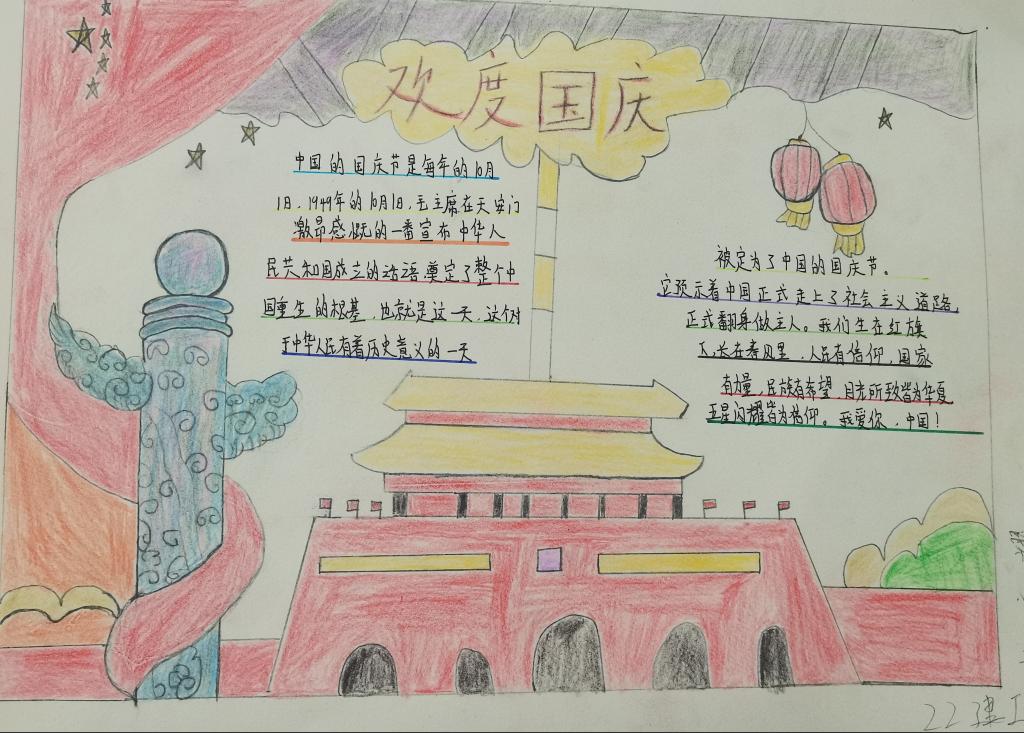 欢度国庆
中国的国庆节是每年的10月
1日，1949年的10月1日，毛主席在天安门
激昂感慨的一番宣布中华人
民共和国成立的话语，奠定了整个中
国重生的根基，也就是这一天，这个对
于中华人民有着历史意义的一天
被定为了中国的国庆节。
它预示着中国正式走上了社会主义道路，
正式翻身做主人。我们生在红旗
下，长在春风里，人民有信仰，国家
有力量，民族有希望，目光所致皆为华夏
五星闪耀皆为信仰。我爱你，中国！
22建工